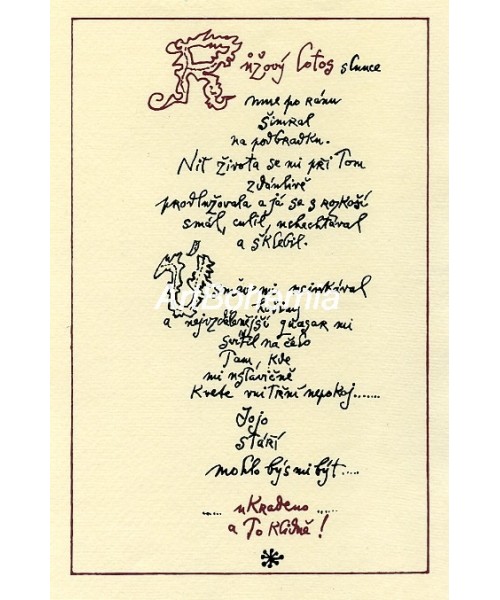 Růžový lotos slunce
mne po ránu
šimral
na podbradku.
Nit života se mi při tom
zdánlivě
prodlužovala a já se s rozkoší
smál, culil, nechechtával
a šklebil.
ArtBohemia
a nejvzdálenější quasar mi
svítil na čelo
Tam, kde
mi ustavičně
kvete vnitřní nepokoj.......
Jojo
stáří
mohlo býs mi být.....
..... ukradeno .....
a to klidně!